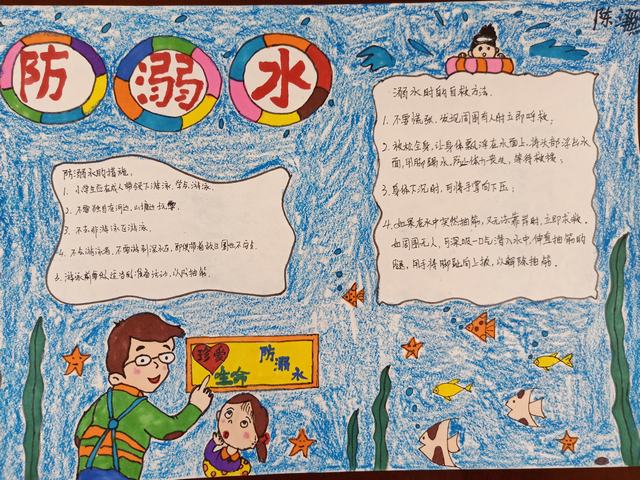 防溺水
陈
防溺水的措施。
1、小学生应在成人带领下游泳，学点游泳。
2、不要独自在河边、山塘边玩耍。
3、不去非游泳区游泳。
4、不会游泳者，不要游到深水区，即使带着救生圈也不安全。
5、游泳前要做适当的准备活动，以防抽筋。
溺水时的自救方法。
1、不要慌张，发现周围有人时立即呼救；
2、放松全身，让身体飘浮在水面上，将头部浮出水
面，用脚踢水，防止体力丧失，等待救援；
3、身体下沉时，可将手掌向下压；
4、如果在水中突然抽筋，又无法靠岸时，立即求救，
如周围无人，可深吸一口气潜入水中，伸直抽筋的
腿，用手将脚趾向上扳，以解除抽筋。
珍爱
生命
防溺水